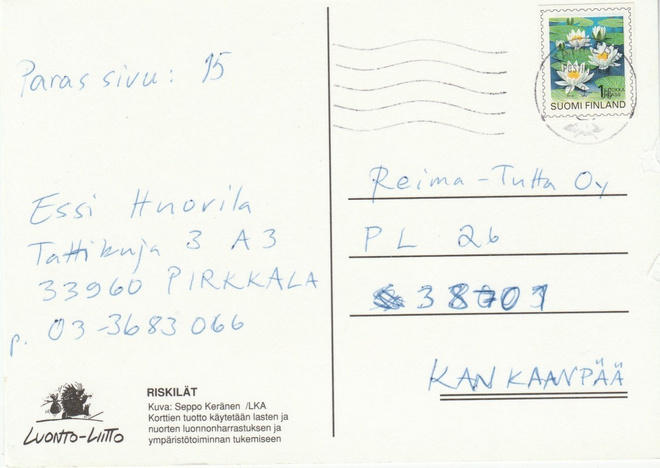 Paras sivu: 15
Essi Huovila
Tattikuja 3 A 3
33960 PIRKKALA
p. 03-3683066
RISKILÄT
Kuva: Seppo Keränen /LKA
Korttien tuotto käytetään lasten ja
nuorten luonnonharrastuksen ja
ympäristötoiminnan tukemiseen
LUONTO-LIITTO
1 LUOKKA
KLASS
SUOMI FINLAND
Reima-Tutta Oy
PL 26
38701
KANKAANPÄÄ